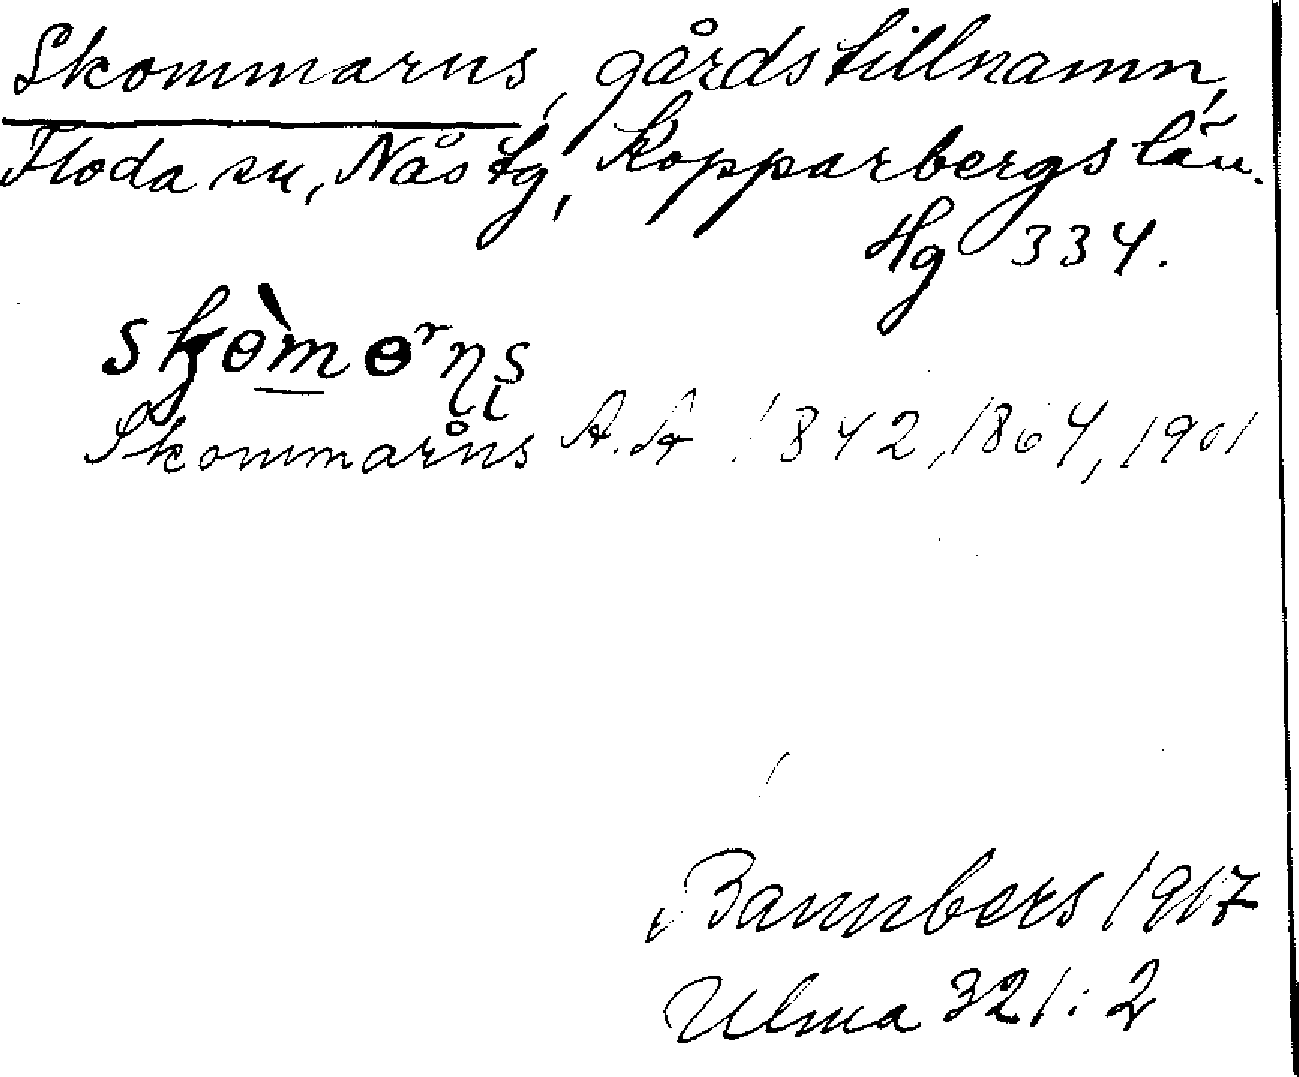 Skommarns, gårdstillnamn,
Floda sn, Nås tg, Kopparbergs län.
Hg 334.
skɵ̀mɵʳɳʂ
Skommarns A.A 1842, 1864, 1901
Bannbers 1917
Ulma 321:2